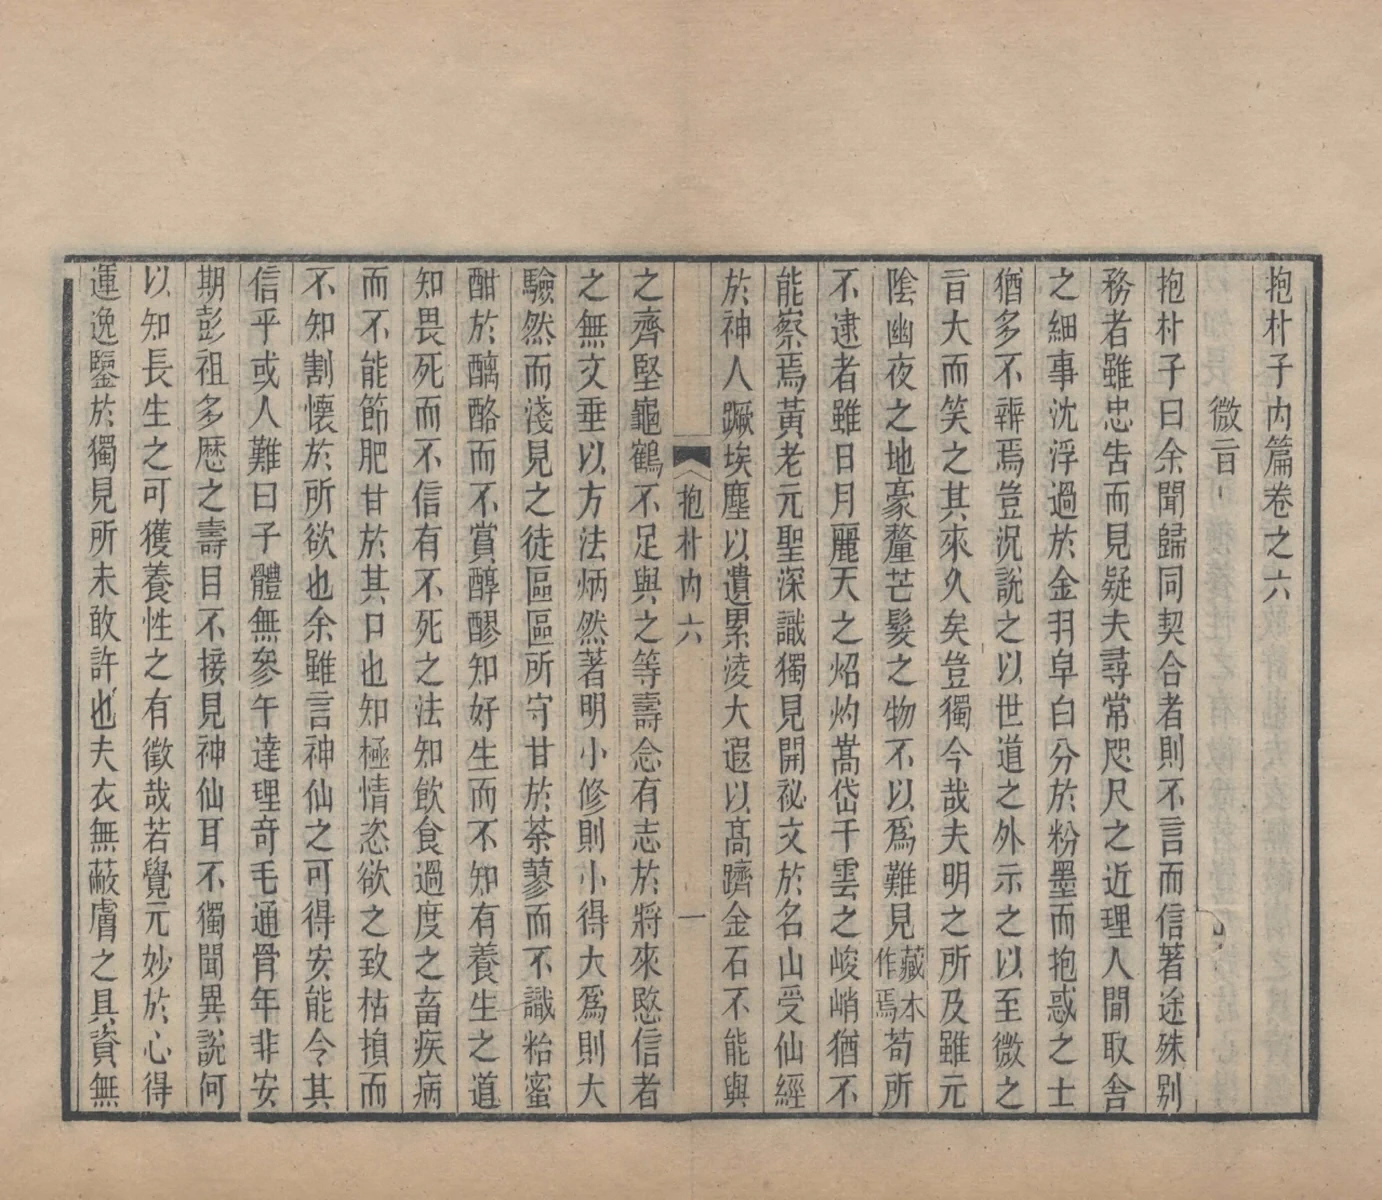 抱朴子内篇卷之六
微旨
抱朴子曰余聞歸同契合者則不言而信著途殊别
務者雖忠告而見疑夫尋常咫尺之近理人間取舍
之細事沈浮過於金羽皁白分於粉墨而抱惑之士
猶多不辨焉豈況說之以世道之外示之以至微之
旨大而笑之其來久矣豈獨今哉夫明之所及雖元
陰幽夜之地豪釐芒髮之物不以爲難見藏本作焉苟所
不逮者雖日月麗天之炤灼嵩岱干雲之峻峭猶不
能察焉黃老元聖深識獨見開祕文於名山受仙經
於神人蹶埃塵以遺累淩大遐以高躋金石不能與
抱朴内六
一
之齊堅龜鶴不足與之等壽念有志於將來愍信者
之無文垂以方法炳然著明小修則小得大爲則大
驗然而淺見之徒區區所守甘於荼蓼而不識粭蜜
酣於醨酪而不賞醇醪知好生而不知有養生之道
知畏死而不信有不死之法知飲食過度之畜疾病
而不能節肥甘於其口也知極情恣欲之致枯損而
不知割懷於所欲也余雖言神仙之可得安能令其
信乎或人難曰子體無參午達理奇毛通骨年非安
期彭祖多歷之壽目不接見神仙耳不獨聞異說何
以知長生之可獲養性之有徵哉若覺元妙於心得
運逸鑒於獨見所未敢許也夫衣無蔽膚之具資無